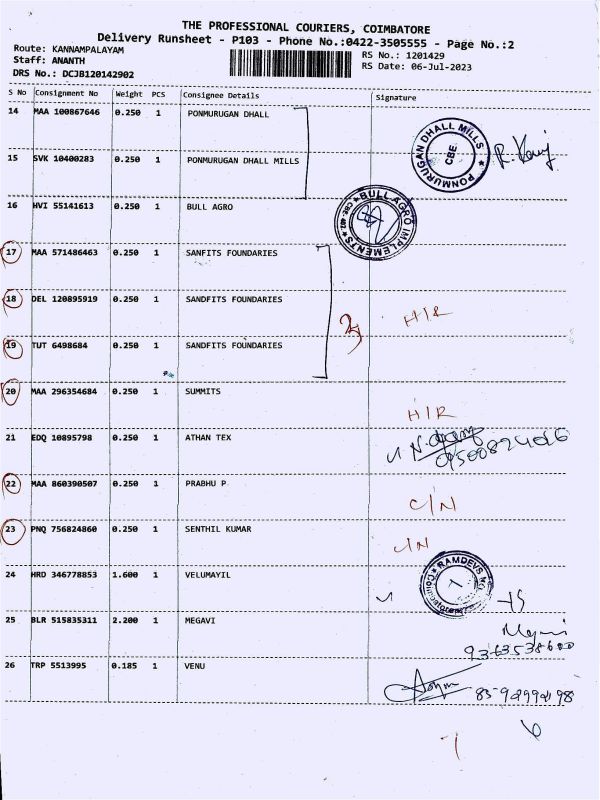 THE PROFESSIONAL COURIERS, COIMBATORE
Delivery Runsheet - P103 - Phone No.:0422-3505555 - Page No.:2
Route: KANNAMPALAYAM RS No.: 1201429
Staff: ANANTH RS Date: 06-Jul-2023
DRS No.: DCJB120142902
S No Consignment No Weight PCS Consignee Details Signature
14 MAA 100867646 0.250 1 PONMURUGAN DHALL
PONMURUGAN DHALL MILLS * CBE.
15 SVK 10400283 0.250 1 PONMURUGAN DHALL MILLS
16 HVI 55141613 0.250 1 BULL AGRO
BULL AGRO IMPLEMENTS
17 MAA 571486463 0.250 1 SANFITS FOUNDARIES
18 DEL 120895919 0.250 1 SANDFITS FOUNDARIES
3 H/R
19 TUT 6498684 0.250 1 SANDFITS FOUNDARIES
20 MAA 296354684 0.250 1 SUMMITS
H/R
21 EDQ 10895798 0.250 1 ATHAN TEX
22 MAA 860390507 0.250 1 PRABHU P
C/N
23 PNQ 756824860 0.250 1 SENTHIL KUMAR
C/N
24 HRD 346778853 1.600 1 VELUMAYIL
25 BLR 515835311 2.200 1 MEGAVI
9363538600
26 TRP 5513995 0.185 1 VENU
7 6